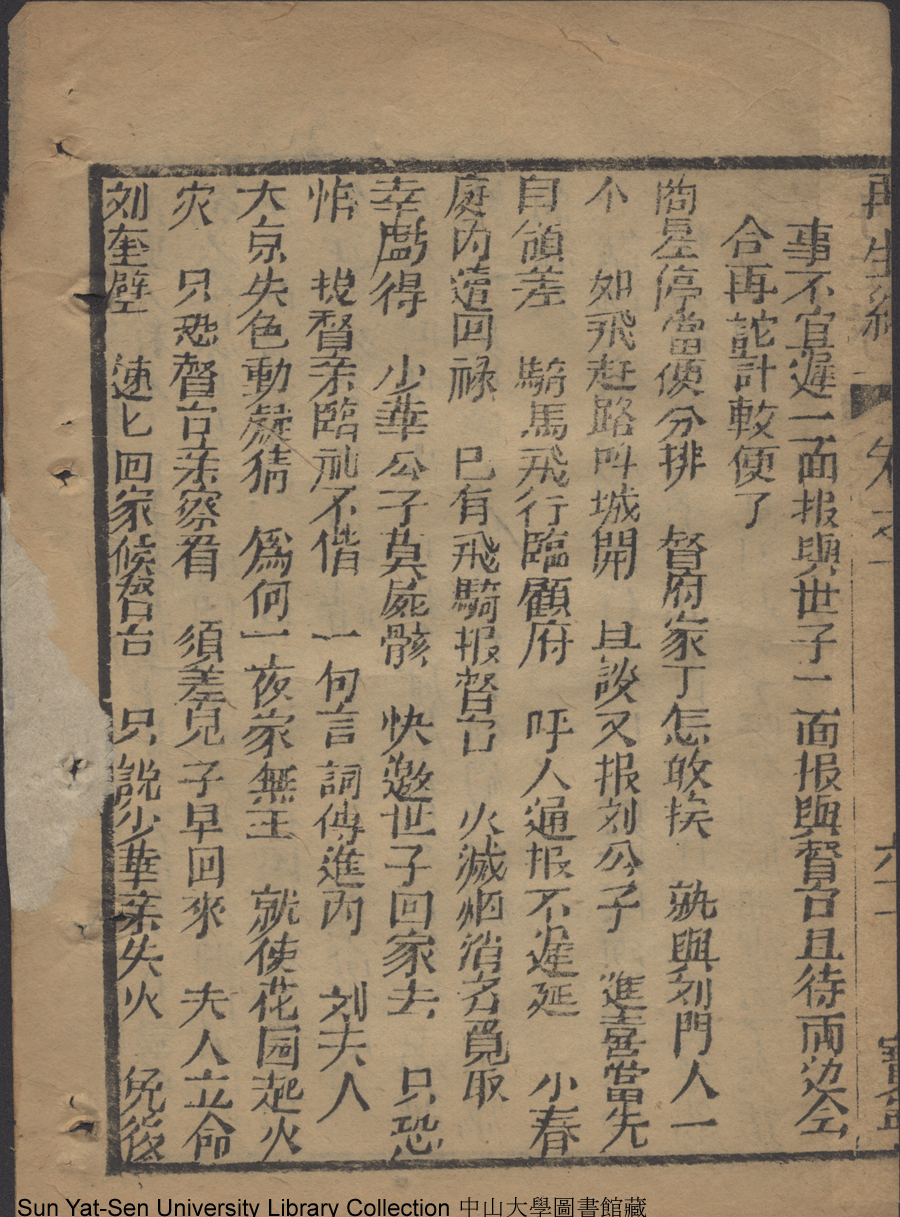 再生緣 卷之一 六十一
事不宜遲一面报與世子一面报與督台且待兩边仝
合再詑計較便了
商量停當便分排 督府家丁怎敢挨 就與刘門人一
不 如飛赶路呌城開 且談又报刘公子 進喜當先
自領差 騎馬飛行臨顧府 呼人通报不遲延 小春
庭內遣回禄 已有飛騎报督台 火滅烟消名覓取
幸戯得 少華公子莫屍骸 快邀世子回家去 只恐
怈 拔督亲臨祌不偕 一句言詞傳進內 刘夫人
大京失色動疑猜 爲何一夜家無主 就使花园起火
灾 只恐督台亲察看 須差兒子早回來 夫人立命
刘奎璧 速匕回家候督台 只說少華亲失火 免後
Sun Yat-Sen University Library Collection 中山大學圖書館藏